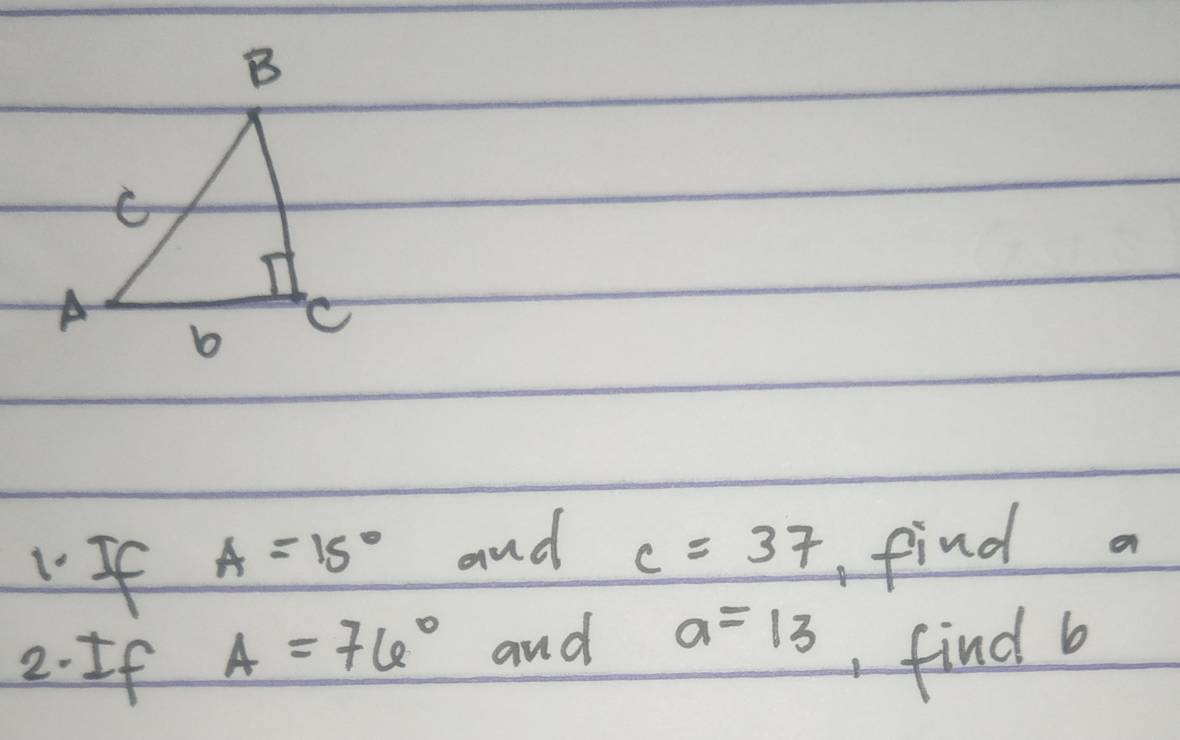 B
c
A
b
C
1. If A = 15° and c = 37, find a
2. If A = 76° and a = 13, find b